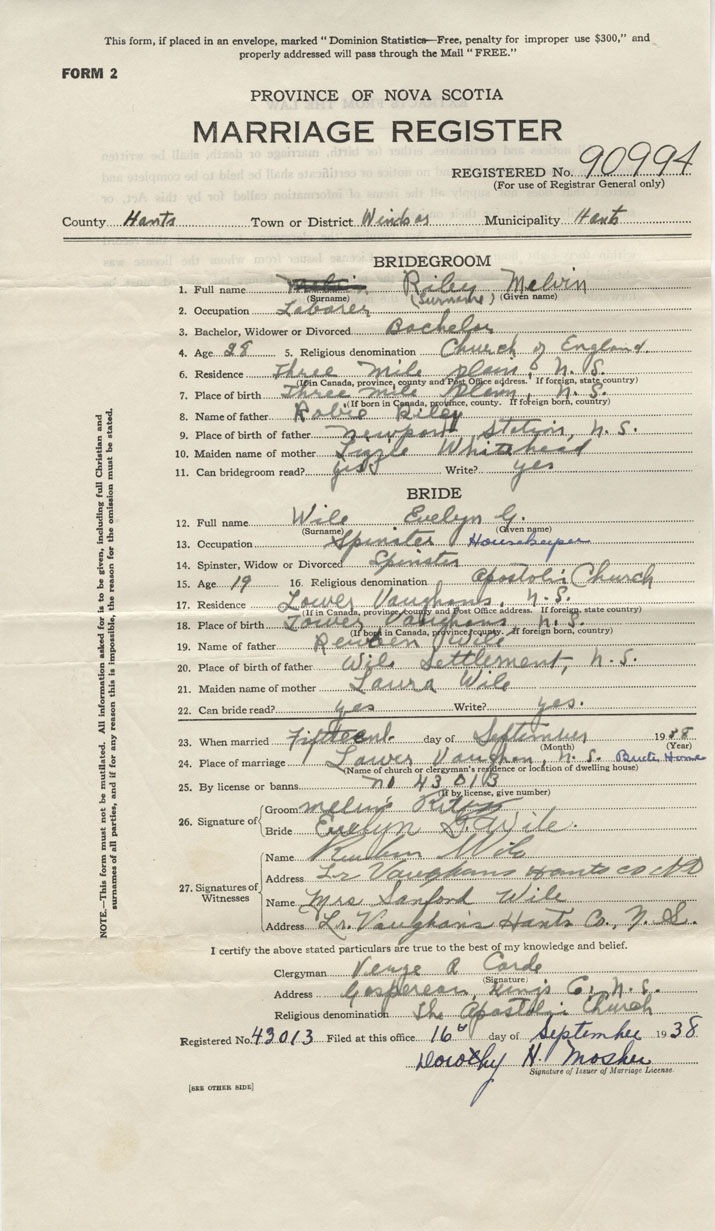 This form, if placed in an envelope, marked "Dominion Statistics—Free, penalty for improper use $300," and
properly addressed will pass through the Mail "FREE."
FORM 2
PROVINCE OF NOVA SCOTIA
MARRIAGE REGISTER
REGISTERED No. 90994
(For use of Registrar General only)
County Hants Town or District Windsor Municipality Hants
BRIDEGROOM
1. Full name Riley Melvin
(Surname) (Surname) (Given name)
2. Occupation Laborer
3. Bachelor, Widower or Divorced Bachelor
4. Age 28 5. Religious denomination Church of England.
6. Residence Three mile plains, N. S.
(If in Canada, province, county and Post Office address. If foreign, state country)
7. Place of birth Three mile Plains, N. S.
(If born in Canada, province, county. If foreign born, country)
8. Name of father Robie Riley
9. Place of father Newport Station, N. S.
10. Maiden name of mother Lizzie Whitehead
11. Can bridegroom read? yes Write? yes
BRIDE
12. Full name Wile Evelyn G.
(Surname) (Given name)
13. Occupation Spinster Housekeeper
14. Spinster, Widow or Divorced Spinster
15. Age 19 16. Religious denomination Apostolic Church
17. Residence Lower Vaughans, N. S.
(If in Canada, province, county and Post Office address. If foreign, state country)
18. Place of birth Lower Vaughans N. S.
(If born in Canada, province, county. If foreign born, country)
19. Name of father Reuben Wile
20. Place of birth of father Wile Settlement, N. S.
21. Maiden name of mother Laura Wile
22. Can bride read? yes Write? yes.
23. When married Fifteenth day of September 1938
(Month) (Year)
24. Place of marriage Lower Vaughan, N. S. Home
(Name of church or clergyman's residence or location of dwelling house)
25. By license or banns no 43013
(If by license, give number)
26. Signature of Groom Melvin Riley
Bride Evelyn G. Wile.
27. Signatures of Witnesses
Name Reuben Wile
Address Lr Vaughans Hants co NS
Name Mrs Sanford Wile
Address Lr. Vaughan's Hants Co., N. S.
I certify the above stated particulars are true to the best of my knowledge and belief.
Clergyman R Corde
(Signature)
Address Gaspereau, Kings C. N. S.
Religious denomination The Apostolic Church
Registered No. 43013 Filed at this office 16 day of September 1938
Dorothy H. Mosher
Signature of Issuer of Marriage License.
[SEE OTHER SIDE]
NOTE.—This form must not be mutilated. All information asked for is to be given, including full Christian and
surnames of all parties, and if for any reason this is impossible, the reason for the omission must be stated.